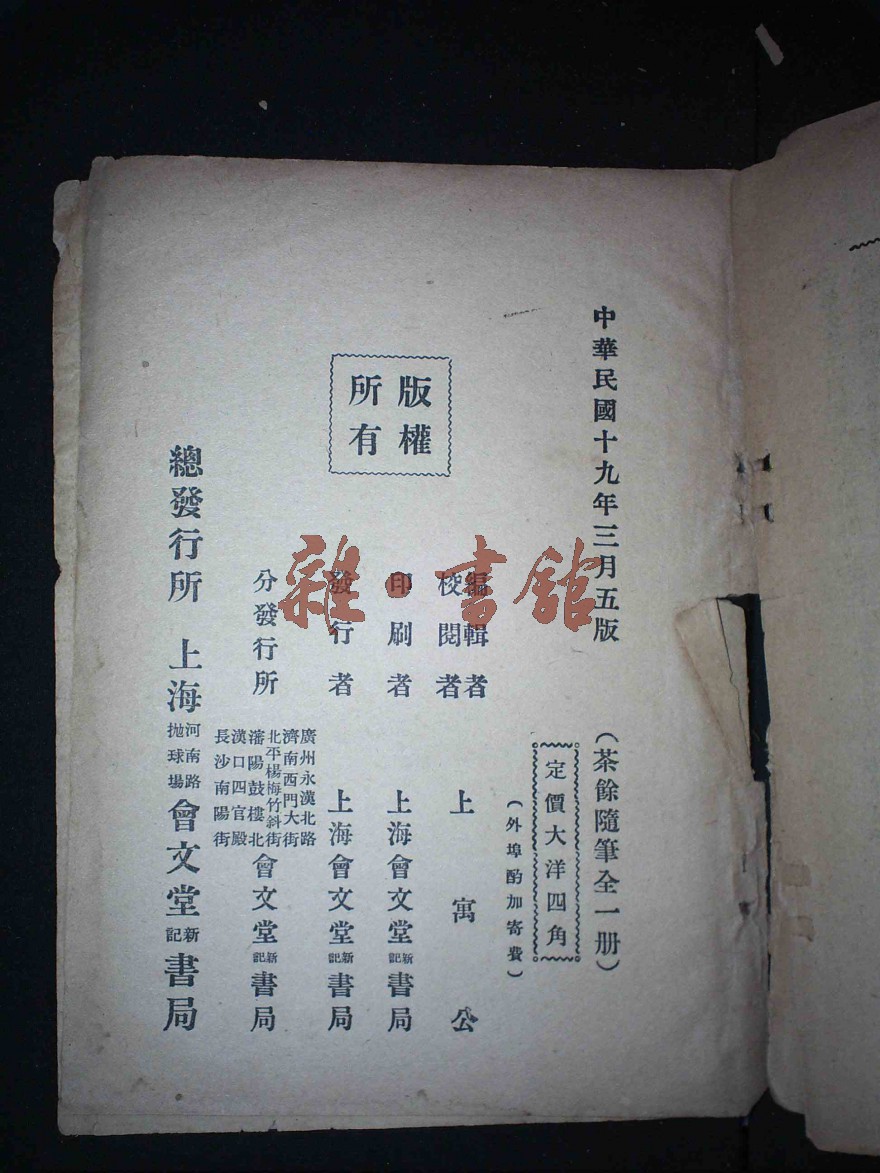 中華民國十九年三月五版
(茶餘隨筆全一册)
定價大洋四角
(外埠酌加寄費)
版權
所有
編輯者
校閱者
上寓公
印刷者 上海會文堂新記書局
發行者 上海會文堂新記書局
分發行所
廣州永漢北路
濟南西門大街
北平楊梅竹斜街
瀋陽鼓樓北
漢口四官殿
長沙南陽街
會文堂新記書局
總發行所 上海河南路拋球場會文堂新記書局
雜·書館